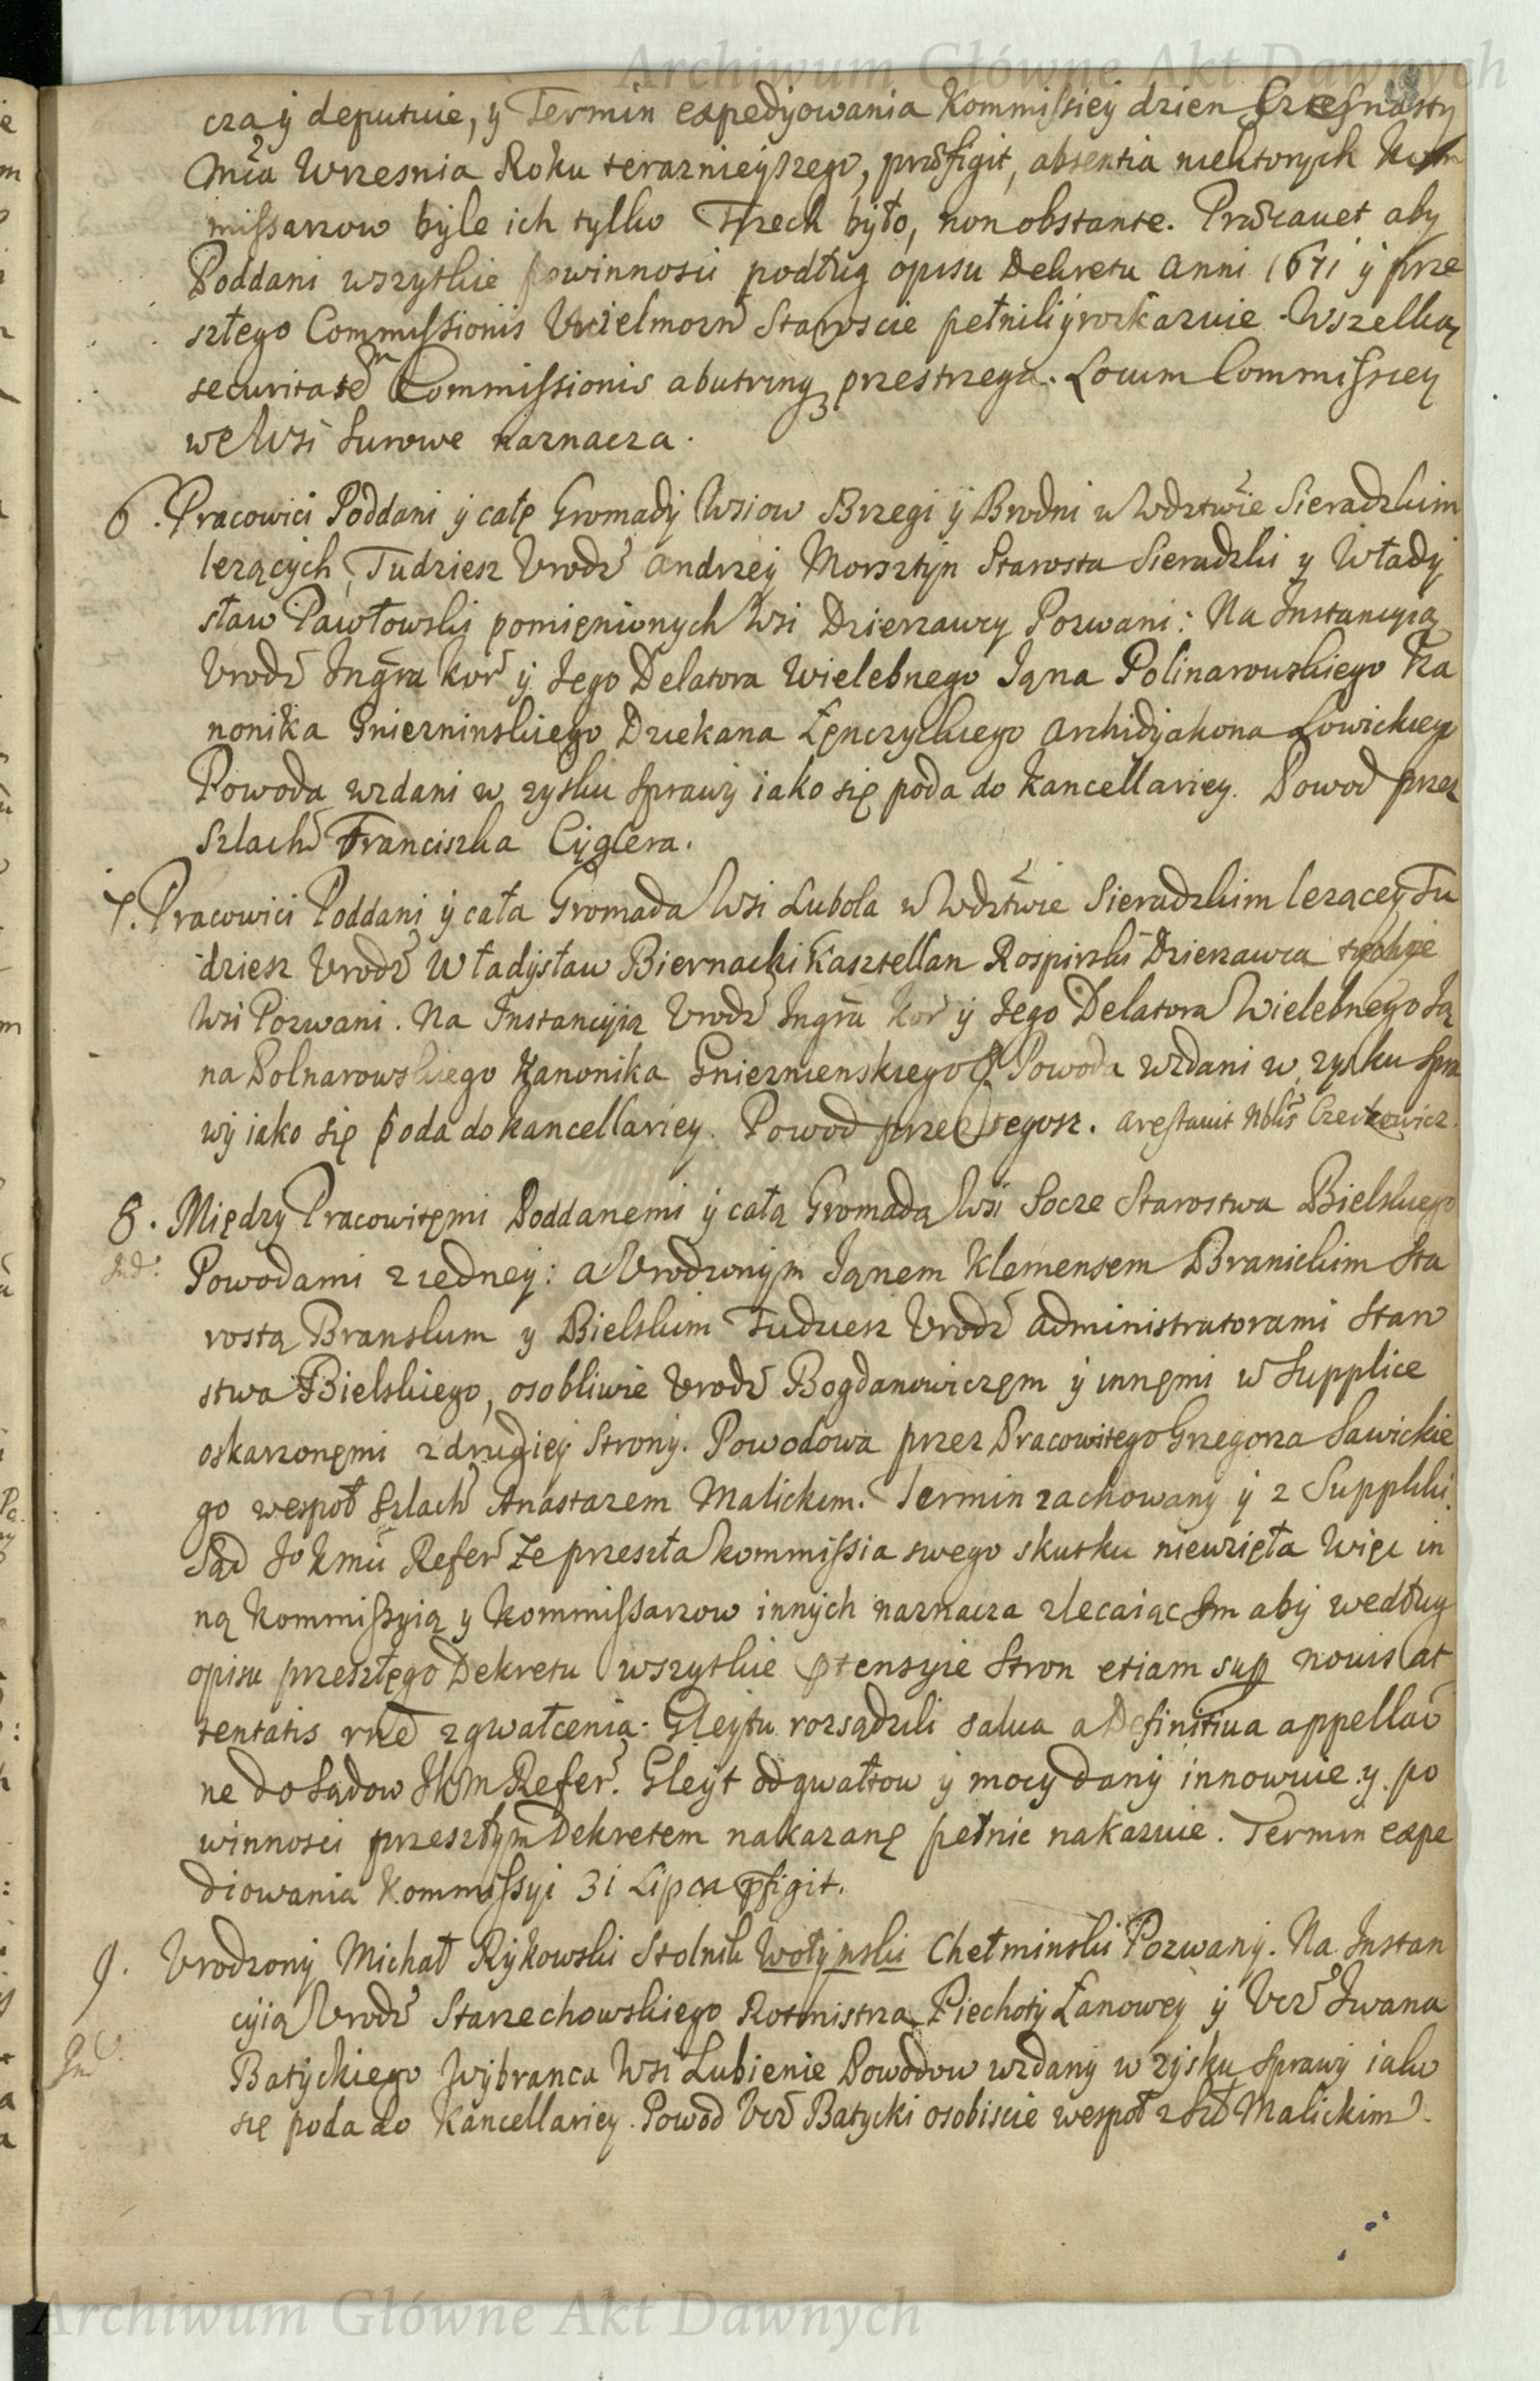 Archiwum Główne Akt Dawnych
cza y deputuie, y Termin expedyowania Kommissiey dzien Szesnasty
Mca Wrzesnia Roku teraznieyszego, præfigit, absentia niektorych Kom
missarzow byle ich tylko Trzech było, non obstante. Præcauet aby
Poddani wszytkie powinnosci podług opisu Dekretu Anni 1671 y prze
szłego Commissionis Wielmozn Staroscie pełnili y rozkazuie. Wszelką
securitatem Commissionis abutrinq przestrzega. Locum Commissiey
we Wsi Surowe naznacza.
6. Pracowici Poddani y całe Gromady Wsiow Brzegi y Brodni w Wdztwie Sieradzkim
lezących, Tudziesz Vrodz Andrzey Morsztyn Starosta Sieradzki y Włady
sław Pawłowski pomięnionych Wsi Dzierzawcy Pozwani: Na Instancyią
Vrodz Ingra Kor y Jego Delatora Wielebnego Jana Polinarowskiego Ka
nonika Gniezninskiego Dziekana Łęnczyckiego Archidyakona Lowickiego
Powoda wzdani w zysku sprawy iako się poda do Kancellariey. Powod przez
Szlach Franciszka Cyglera.
7. Pracowici Poddani y cała Gromada Wsi Lubola w Wdztwie Sieradzkim lezącey Tu
dziesz Vrodz Władysław Biernacki Kasztellan Rospirski Dzierzawca teyże
Wsi Pozwani. Na Instancyią Vrodz Ingra Kor y Jego Delatora Wielebnego Ja
na Polnarowskiego Kanonika Gnieznienskiego Powoda wzdani w zysku spra
wy iako się poda do kancellariey. Powod przez tegosz. Arestauit Nblis Czeczkewicz.
8. Między Pracowitęmi Poddanemi y całą Gromadą Wsi Socze Starostwa Bielskiego
Jnd. Powodami z iedney: a Vrodzonym Janem Klemensem Branickim Sta
rostą Branskim y Bielskim Tudziesz Vrodz Administratorami Staro
stwa Bielskiego, osobliwie Vrodz Bogdanowiczęm y innęmi w Supplice
oskarzonęmi z drugiey Strony. Powodowa przez Pracowitego Grzegorza Sawickie
go wespoł Szlach Anastazem Malickim. Termin zachowany y z Suppliki.
Sąd Jo Kmci Refer Ze przeszła kommissia swego skutku niewzięła Więc in
ną Kommissyią y Kommissarzow innych naznacza zlecaiąc Im aby według
opisu przeszłęgo Dekretu wszytkie ptensyie Stron etiam sup nouis at
tentatis rne zgwałcenia Gleytu rozsądzili salua a Definitiua appellao
ne do Sądow JKM Refer. Gleyt od gwałtow y mocy dany innowuie y po
winnosci przeszłym Dekretem nakazanę pełnic nakazuie. Termin expe
diowania Kommissyi 31 Lipca pfigit.
9. Vrodzony Michał Rykowski Stolnik Wołynski Chełminski Pozwany. Na Instan
cyią Vrodz Starzechowskiego Rotmistrza Piechoty Łanowey y Vcz Iwana
Jnd Batyckiego Wybranca Wsi Lubienie Powodow wzdany w zysku sprawy iako
się poda do Kancellariey. Powod Vcz Batycki osobiscie wespoł z Szl Malickim.
Archiwum Główne Akt Dawnych